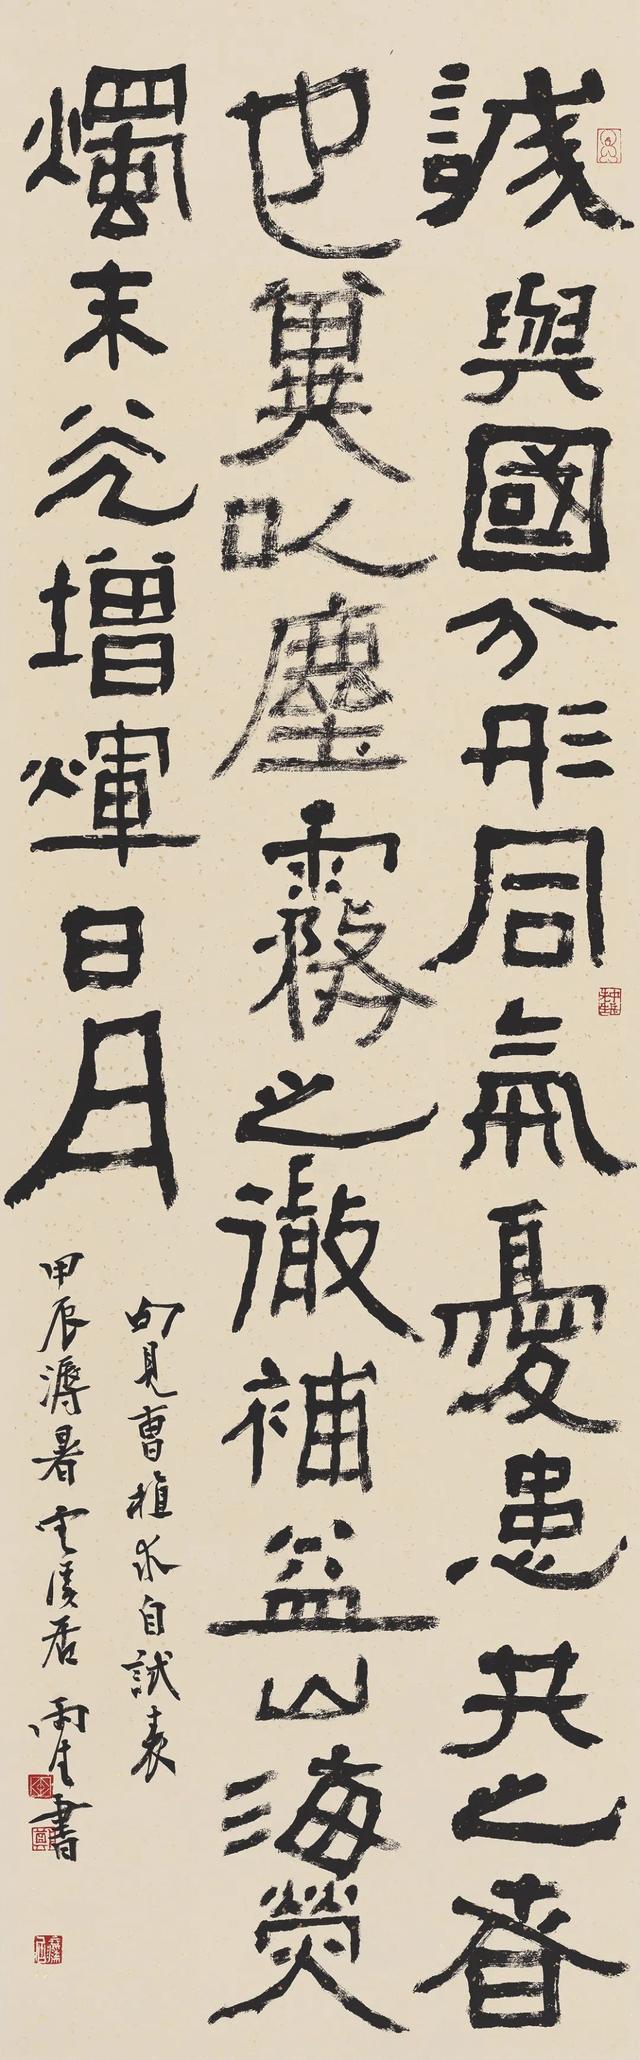 誠與國分形同氣憂患共之者
也冀以塵霧之微補益山海熒
燭末光增輝日月
句見曹植求自試表
甲辰溽暑雲溪居雨生書